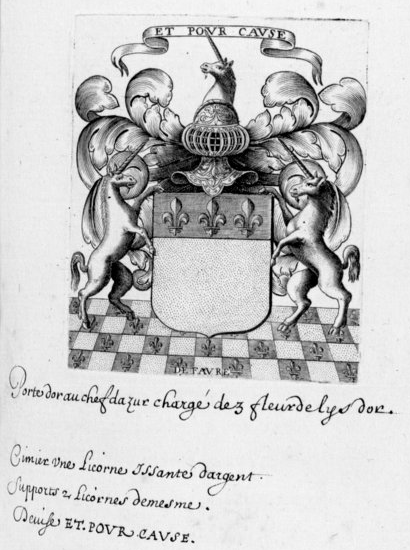 ET POVR CAVSE
DE FAVRE
Porte dor au chef dazur chargé de 3 fleur de lys dor.
Cimier Vne Licorne Issante dargent.
Supports 2 Licornes de mesme.
Devise ET. POVR CAVSE.